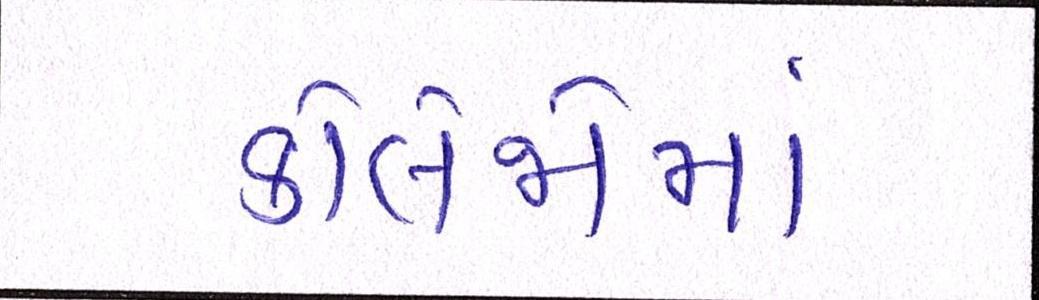 કોલેજોમાં